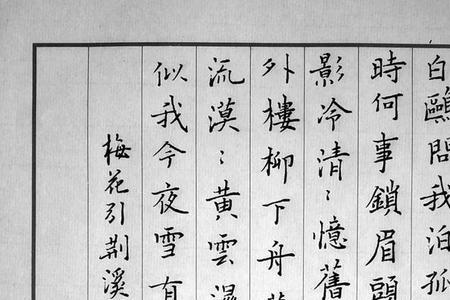 白鷗問我泊孤
時何事鎖眉頭
影冷清〻憶舊
外樓柳下舟
流漠〻黃雲濕
似我今夜雪有
梅花引荆溪